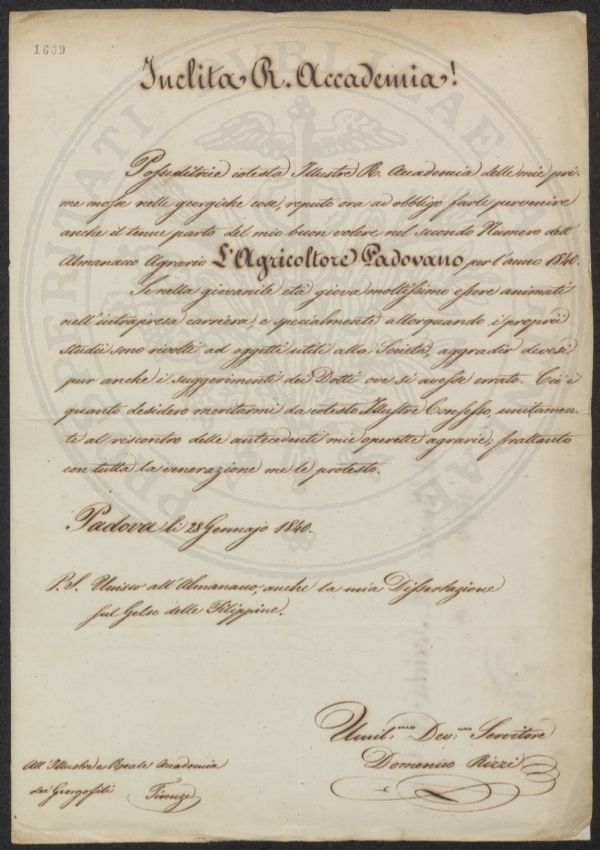 1609
Inclita R. Accademia!
Posseditrice cotesta Illustre R. Accademia delle mie pri-
me mosse nelle georgiche cose, reputo ora ad obbligo farle pervenire
anche il tenue parto del mio buon volere nel secondo Numero dell'
Almanacco Agrario L'Agricoltore Padovano per l'anno 1840.
Se nella giovanile età giova moltissimo essere animati
nell'intrapresa carriera, e specialmente allorquando i proprii
studii sono rivolti ad oggetti utili alla Società, aggradir devesi
pur anche i suggerimenti dei Dotti ove si avesse errato. Ciò è
quanto desidero meritarmi da cotesto Illustre Consesso, unitamen-
te al riscontro delle antecedenti mie operette agrarie; frattanto
con tutta la venerazione me le protesto.
Padova li 28 Gennajo 1840.
P.S. Unisco all'Almanacco, anche la mia Dissertazione
sul Gelso delle Filippine.
Umil.mo Dev.mo Servitore
Domenico Rizzi
All'Illustre e Reale Accademia
dei Georgofili Firenze